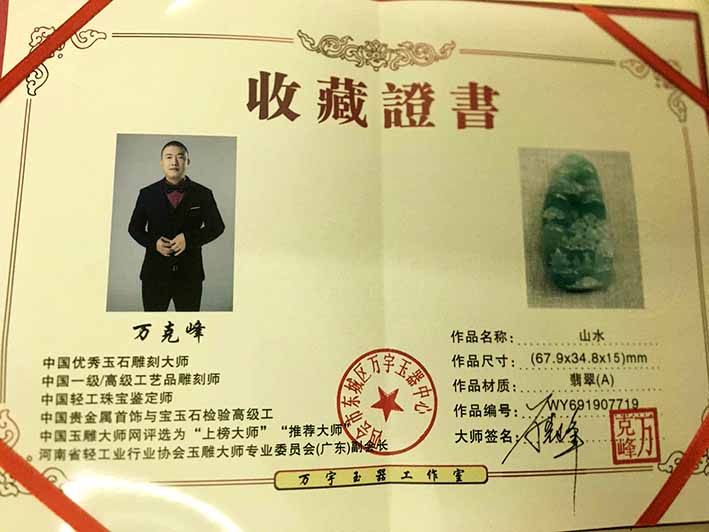 收藏證書
万克峰
中国优秀玉石雕刻大师
中国一级/高级工艺品雕刻师
中国轻工珠宝鉴定师
中国贵金属首饰与宝玉石检验高级工
中国玉雕大师网评选为“上榜大师”“推荐大师”
河南省轻工业行业协会玉雕大师专业委员会(广东)副会长
作品名称: 山水
作品尺寸: (67.9x34.8x15)mm
作品材质: 翡翠(A)
作品编号: WY691907719
大师签名:
万克峰
四会市东城区万宇玉器中心
万宇玉器工作室